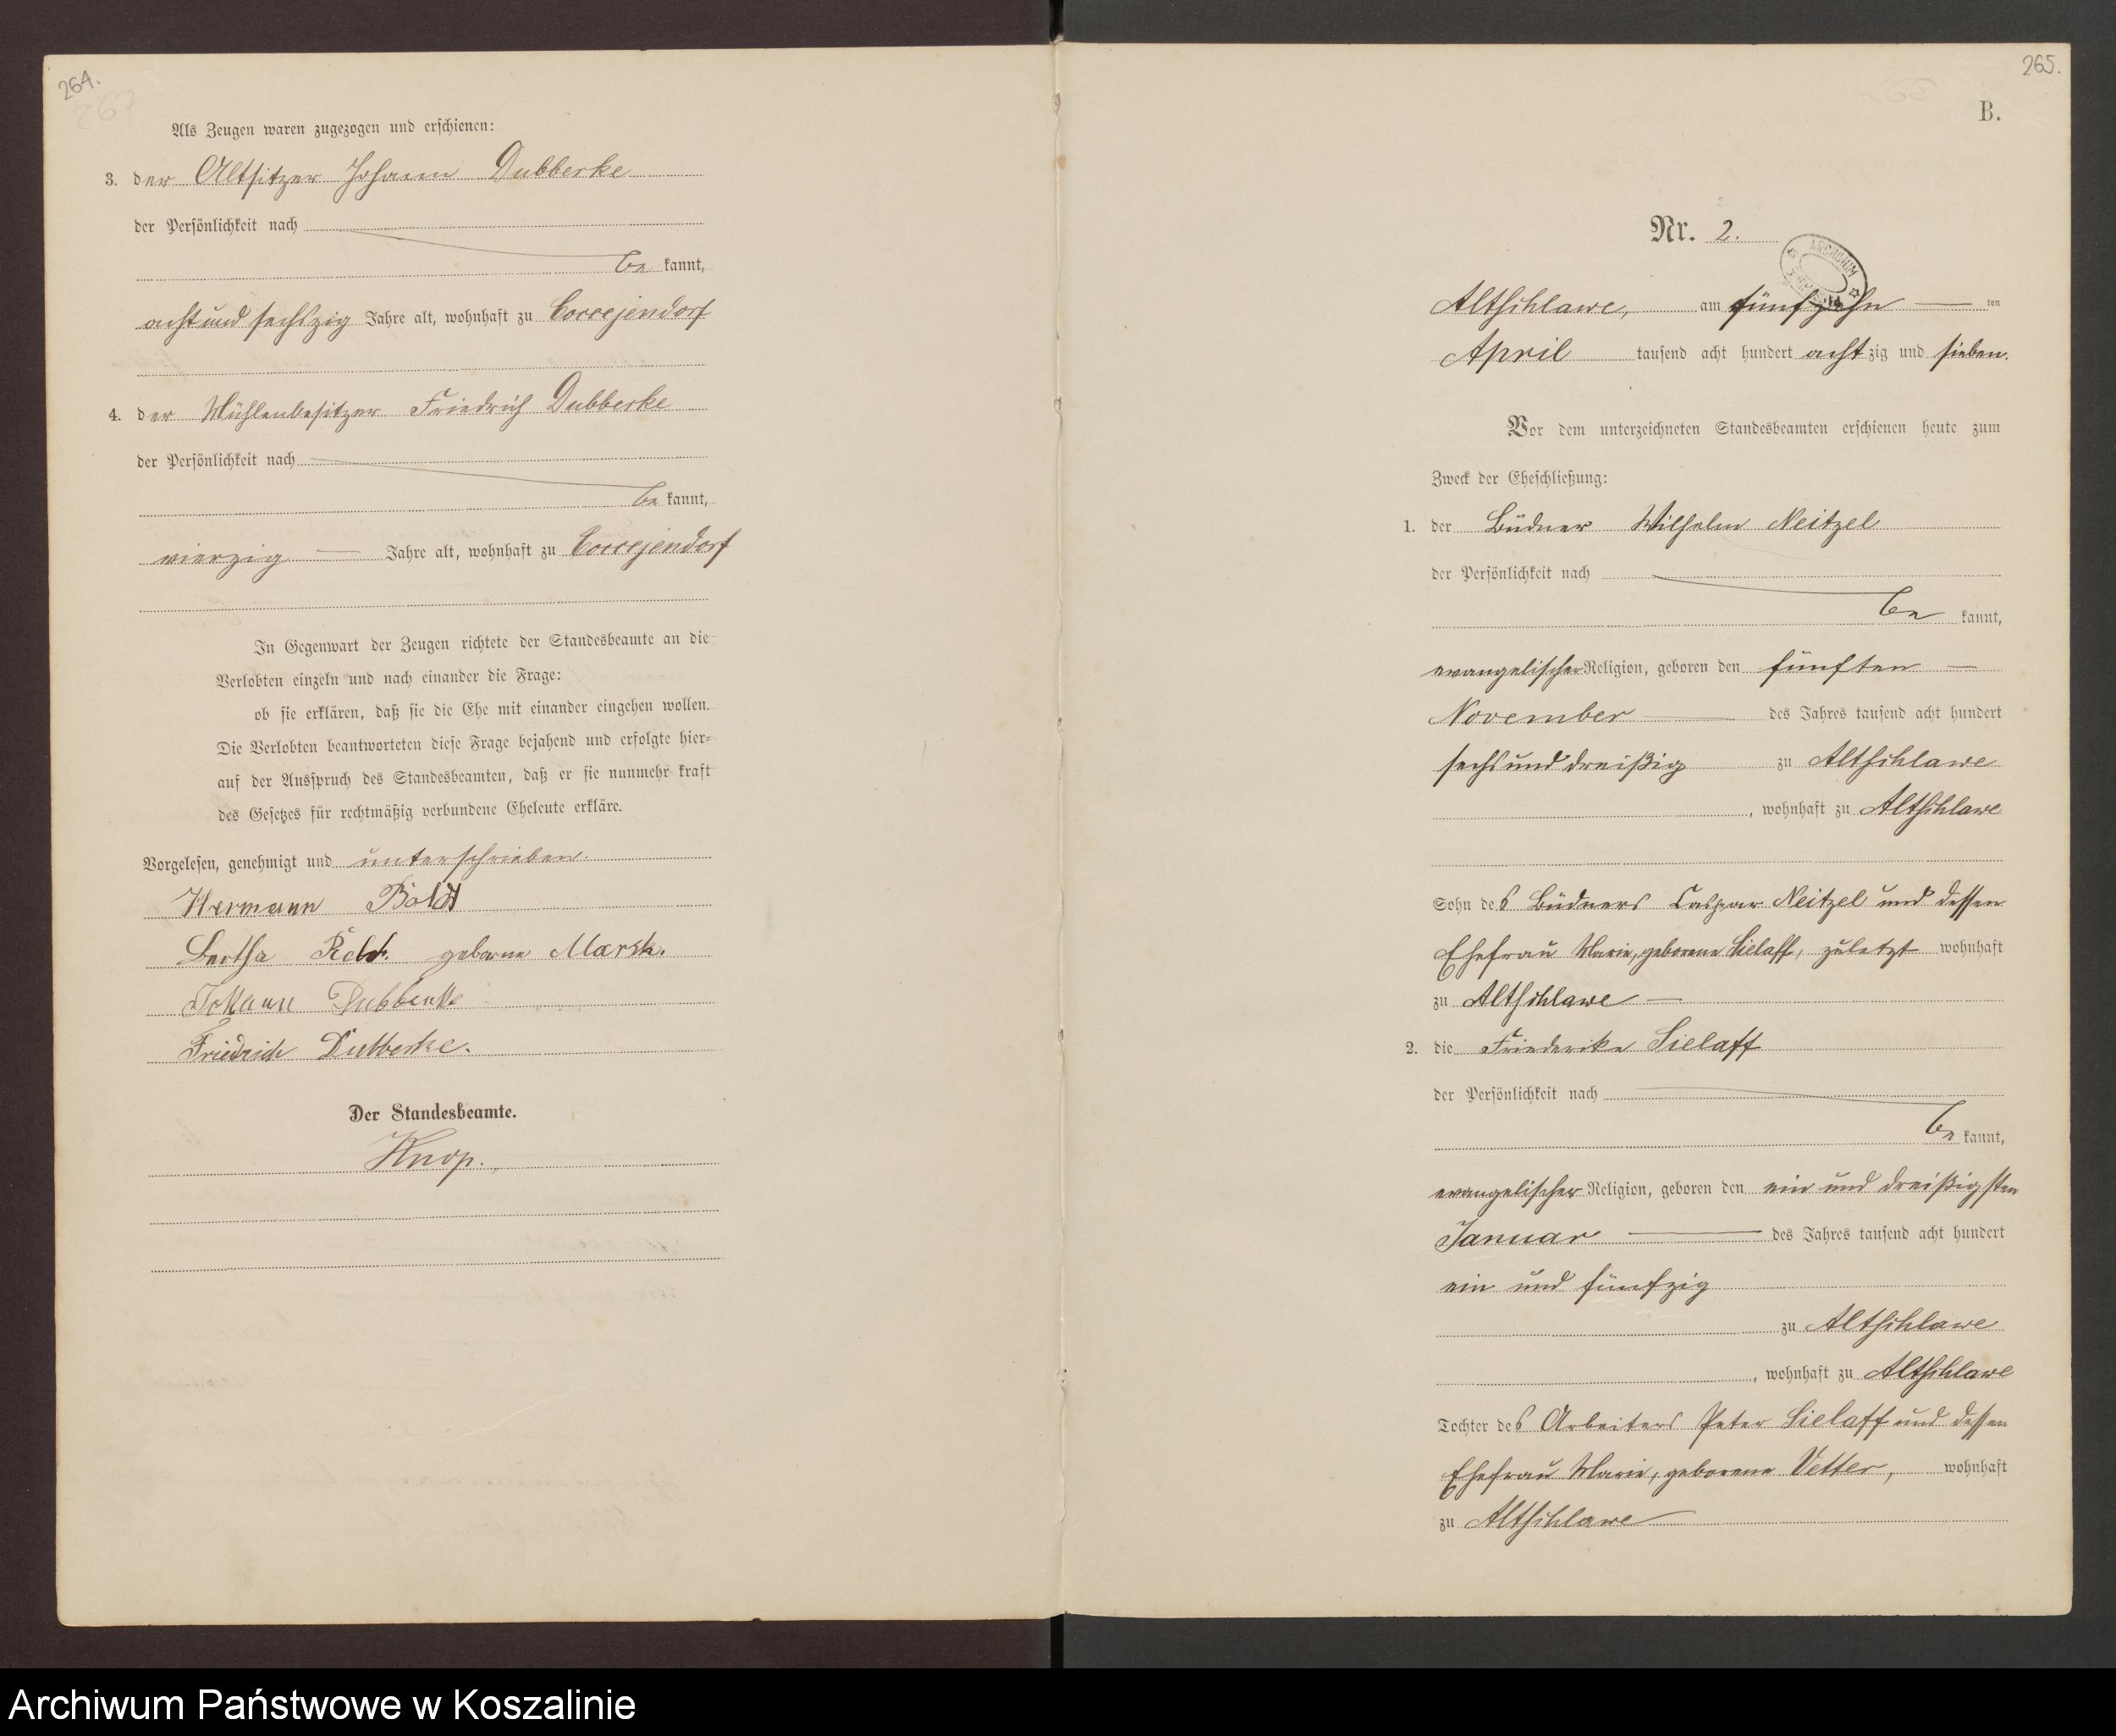 264.
Als Zeugen waren zugezogen und erschienen:
3. der Altsitzer Johann Dubberke
der Persönlichkeit nach
be kannt,
acht und sechszig Jahre alt, wohnhaft zu Coccejendorf
4. der Mühlenbesitzer Friedrich Dubberke
der Persönlichkeit nach
be kannt,
vierzig — Jahre alt, wohnhaft zu Coccejendorf
In Gegenwart der Zeugen richtete der Standesbeamte an die
Verlobten einzeln und nach einander die Frage:
ob sie erklären, daß sie die Ehe mit einander eingehen wollen.
Die Verlobten beantworteten diese Frage bejahend und erfolgte hier=
auf der Ausspruch des Standesbeamten, daß er sie nunmehr kraft
des Gesetzes für rechtmäßig verbundene Eheleute erkläre.
Vorgelesen, genehmigt und unterschrieben.
Hermann Boldt
Bertha geborne
Johann Dubberke
Friedrich Dubberke.
Der Standesbeamte.
Knop.
265.
B.
Nr. 2.
ARCHIWUM
Altschlawe, am fünfzehn — ten
April tausend acht hundert acht zig und sieben.
Vor dem unterzeichneten Standesbeamten erschienen heute zum
Zweck der Eheschließung:
1. der Büdner Wilhelm Neitzel
der Persönlichkeit nach
be kannt,
evangelischer Religion, geboren den fünften —
November — des Jahres tausend acht hundert
sechs und dreißig zu Altschlawe
, wohnhaft zu Altschlawe
Sohn des Büdners Caspar Neitzel und dessen
Ehefrau Marie, geborene Sielaff, zuletzt wohnhaft
zu Altschlawe —
2. die Friederike Sielaff
der Persönlichkeit nach
be kannt,
evangelischer Religion, geboren den ein und dreißigsten
Januar — des Jahres tausend acht hundert
ein und fünfzig
zu Altschlawe
, wohnhaft zu Altschlawe
Tochter des Arbeiters Peter Sielaff und dessen
Ehefrau Marie, geborene Vetter, wohnhaft
zu Altschlawe —
Archiwum Państwowe w Koszalinie